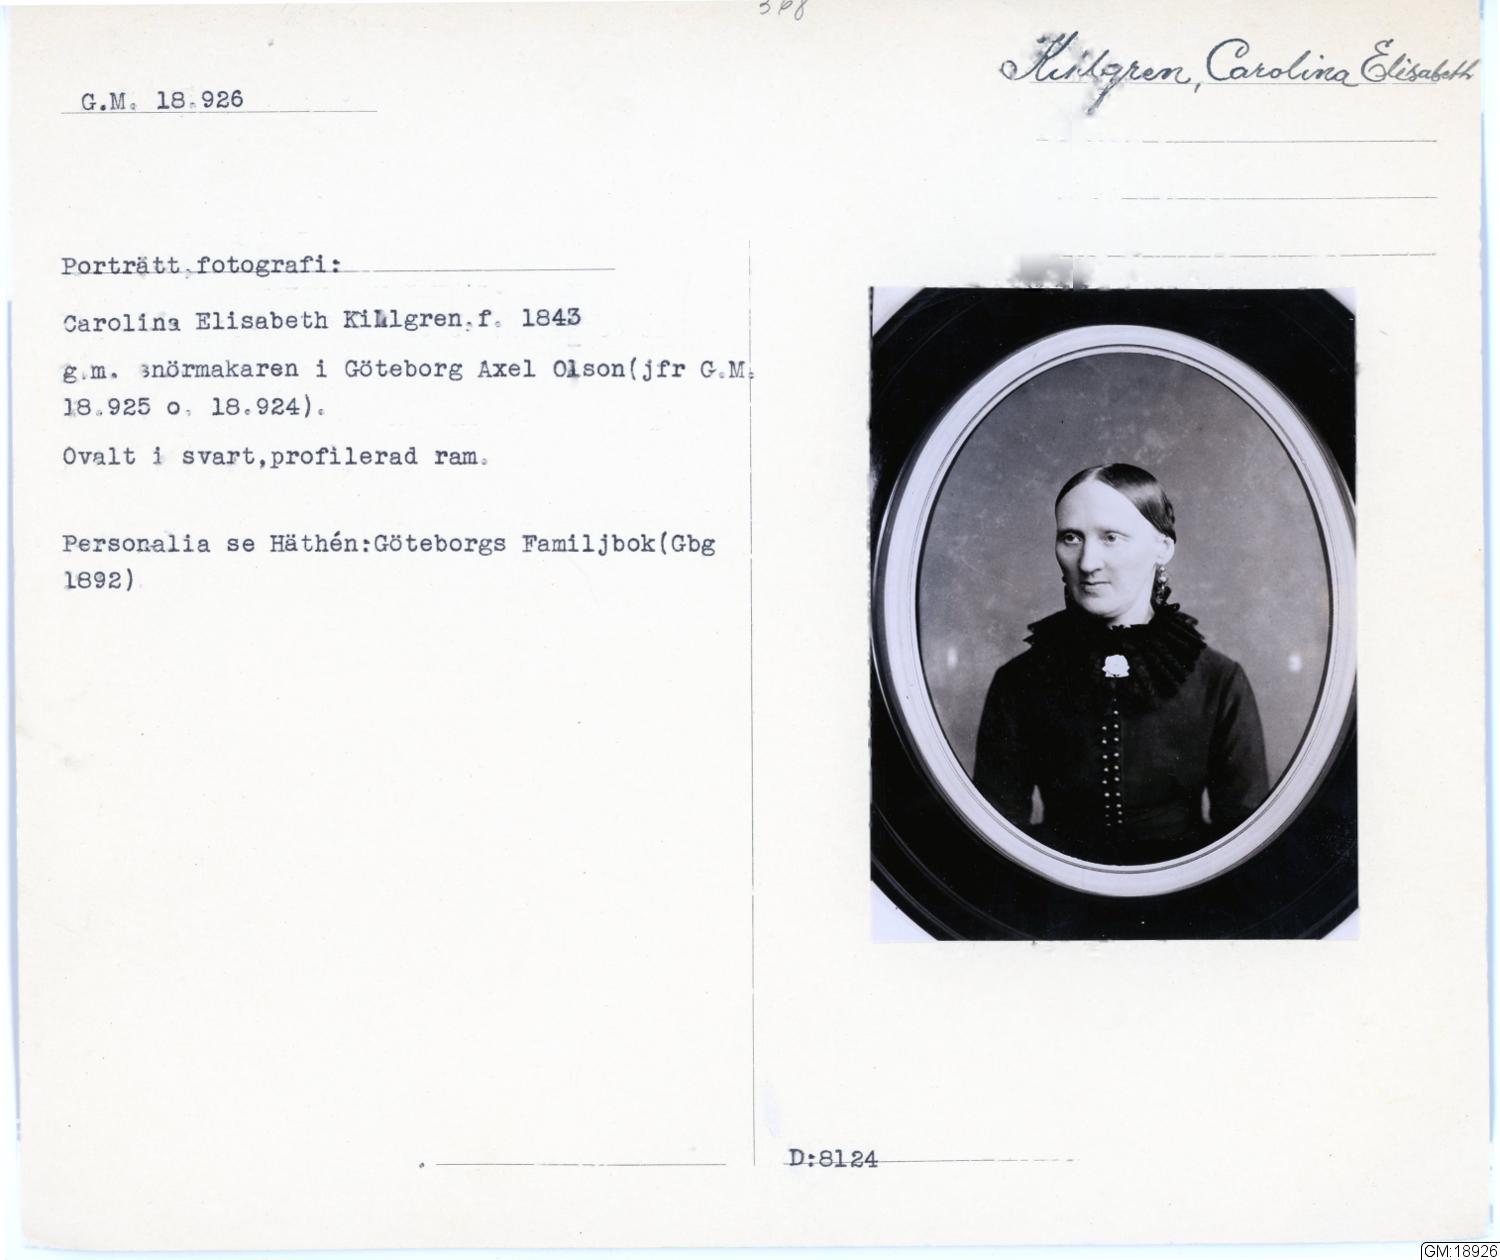 368
Killgren, Carolina Elisabeth
G.M. 18.926
Porträtt, fotografi:
Carolina Elisabeth Killgren, f. 1843
g.m. snörmakaren i Göteborg Axel Olson(jfr G.M.
18.925 o. 18.924).
Ovalt i svart,profilerad ram.
Personalia se Häthén:Göteborgs Familjbok(Gbg
1892)
D:8124
GM:18926